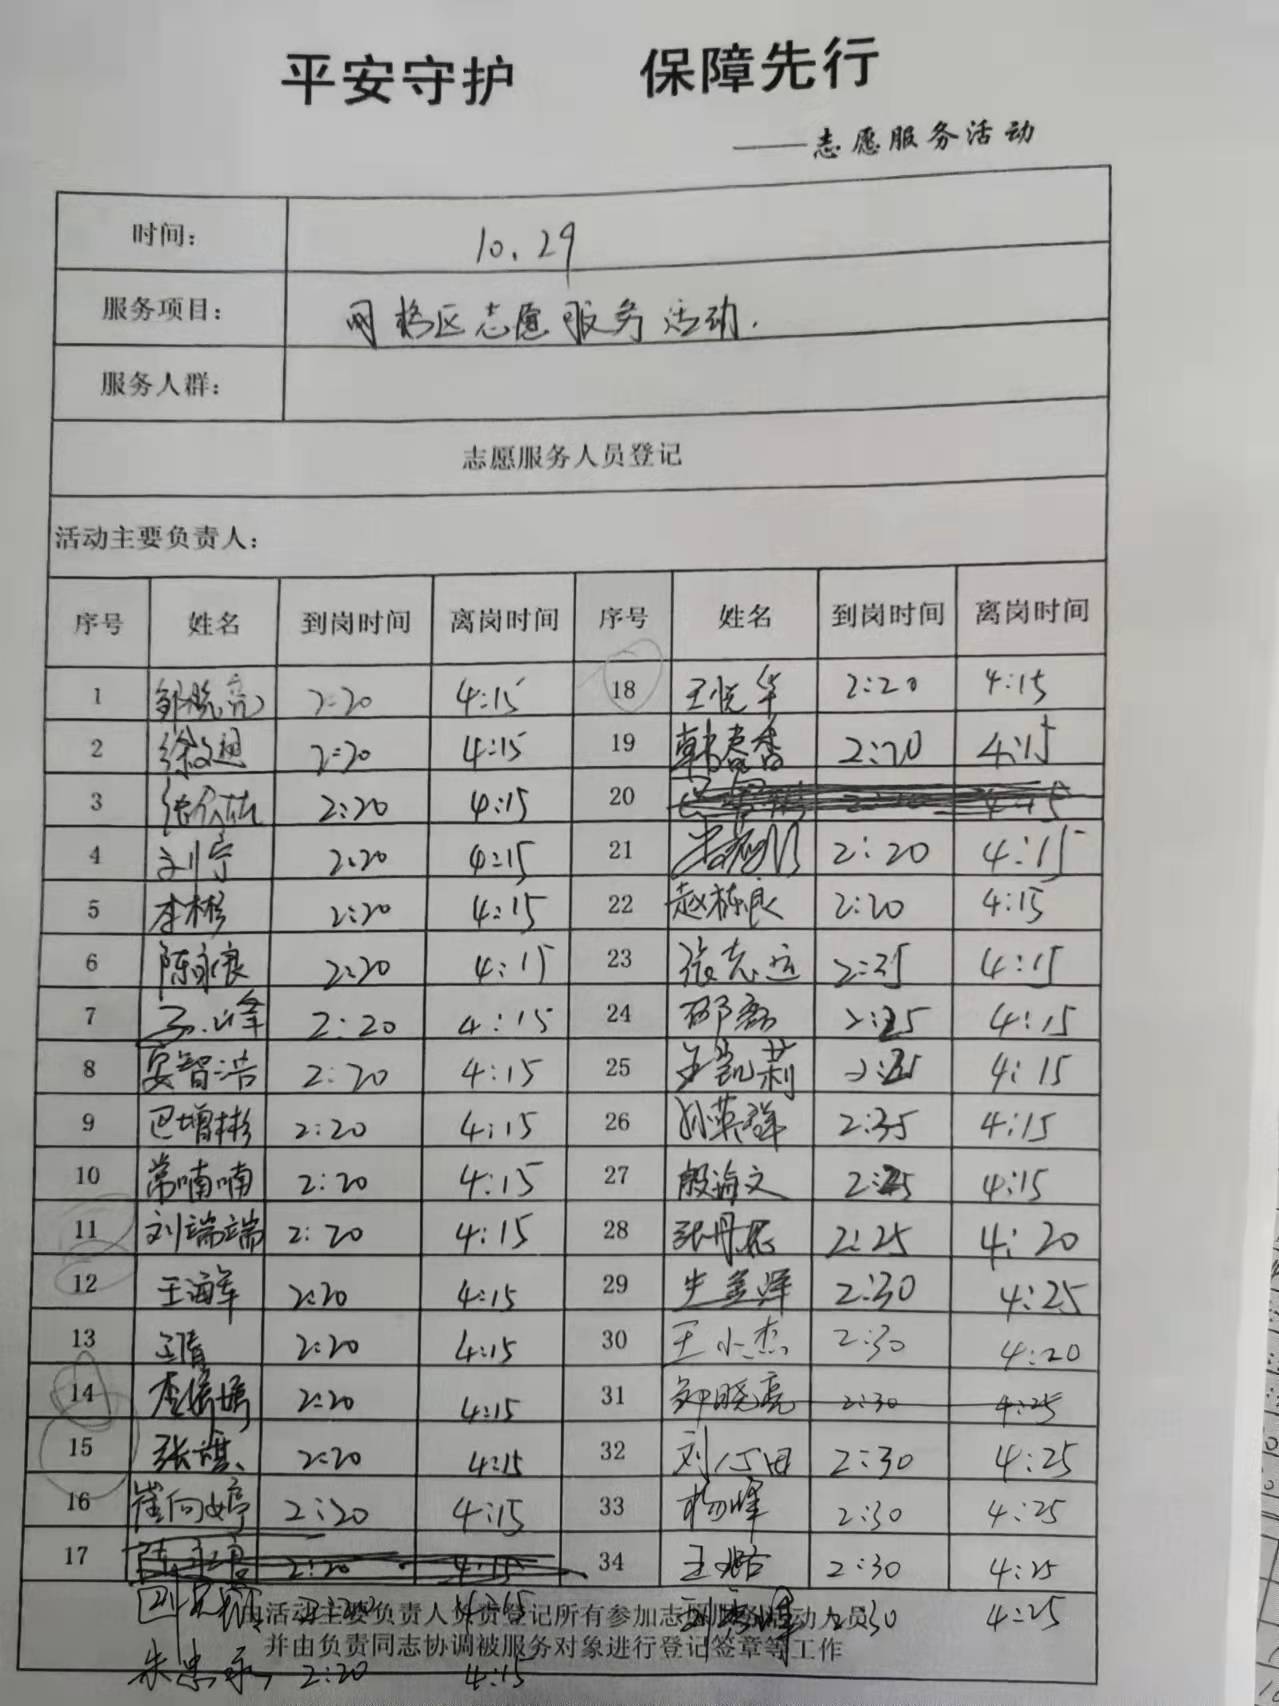 平安守护 保障先行
——志愿服务活动
时间： 10.29
服务项目： 网格区志愿服务活动.
服务人群：
志愿服务人员登记
活动主要负责人：
序号 姓名 到岗时间 离岗时间 序号 姓名 到岗时间 离岗时间
1 邹晓亮 2:20 4:15 18 王悦华 2:20 4:15
2 2:20 4:15 19 韩春香 2:20 4:15
3 2:20 4:15 20
4 刘宁 2:20 4:15 21 2:20 4:15
5 李彬 2:20 4:15 22 赵栋良 2:20 4:15
6 陈永良 2:20 4:15 23 张志远 2:35 4:15
7 2:20 4:15 24 邵磊 2:25 4:15
8 晏智浩 2:20 4:15 25 王凯莉 4:15
9 巴增彬 2:20 4:15 26 孙英群 2:35 4:15
10 常喃喃 2:20 4:15 27 殷海文 2:25 4:15
11 刘端端 2:20 4:15 28 2:25 4:20
12 王海军 2:20 4:15 29 2:30 4:25
13 2:20 4:15 30 王小杰 2:30 4:20
14 2:20 4:15 31 邹晓亮 2:30 4:25
15 张琪 2:20 4:15 32 刘心田 2:30 4:25
16 崔向婷 2:20 4:15 33 杨峰 2:30 4:25
17 2:20 4:15 34 2:30 4:25
4:15 2:30 4:25
活动主要负责人负责登记所有参加志愿服务活动人员
并由负责同志协调被服务对象进行登记签章等工作
朱忠承 2:20 4:15